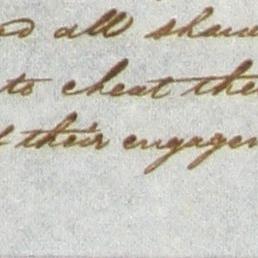 all shaw
to cheat the
their engagem